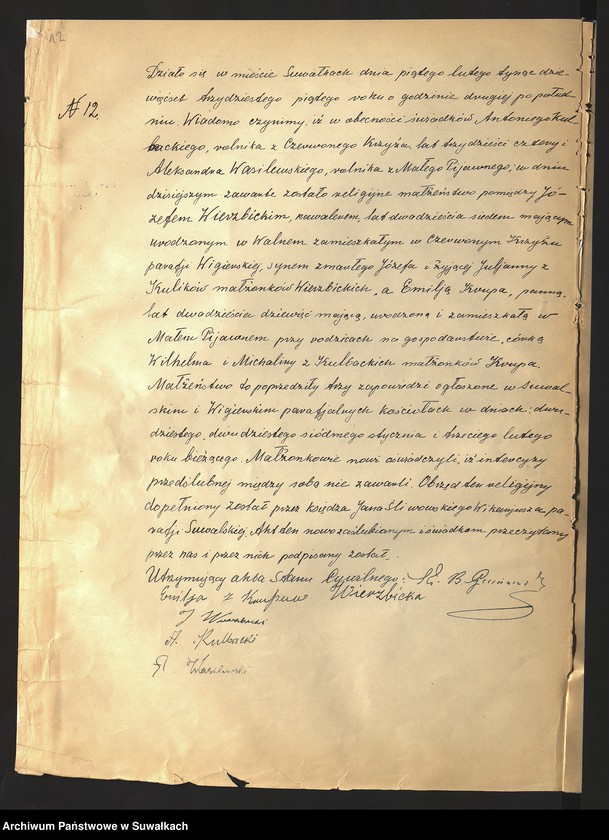 12
№ 12.
Działo się w mieście Suwałkach dnia piątego lutego tysiąc dzie-
więćset trzydziestego piątego roku o godzinie drugiej po połud-
niu. Wiadomo czynimy, iż w obecności świadków, Antoniego Kul
backiego, rolnika z Czerwonego Krzyża, lat trzydzieści cztery i
Aleksandra Wasilewskiego, rolnika z Małego Pijawnego; w dniu
dzisiejszym zawarte zostało religijne małżeństwo pomiędzy Jó-
zefem Wierzbickim, kawalerem, lat dwadzieścia siedem mającym
urodzonym w Walnem zamieszkałym w Czerwonym Krzyżu
parafji Wigierskiej, synem zmarłego Józefa i żyjącej Juljanny z
Kulików małżonków Wierzbickich, a Emilją Krupa, panną,
lat dwadzieścia dziewięć mającą, urodzoną i zamieszkałą w
Małem Pijawnem przy rodzicach na gospodarstwie, córką
Wilhelma i Michaliny z Kulbackich małżonków Krupa.
Małżeństwo to poprzedziły trzy zapowiedzi ogłoszone w Suwal-
skim i Wigierskim parafjalnych kościołach w dniach: dwu-
dziestego, dwudziestego siódmego stycznia i trzeciego lutego
roku bieżącego. Małżonkowie nowi oświadczyli, iż intercyzy
przedślubnej między sobą nie zawarli. Obrzęd ten religijny
dopełniony został przez księdza Jana Śliwowskiego Wikarjusza pa-
rafji Suwalskiej. Akt ten nowozaślubionym i świadkom przeczytany
przez nas i przez nich podpisany został.
Utrzymujący akta Stanu Cywilnego: Ks. B.
Emilja z Krupów Wierzbicka
J Wierzbicki
A. Kulbacki
A Wasilewski
Archiwum Państwowe w Suwałkach